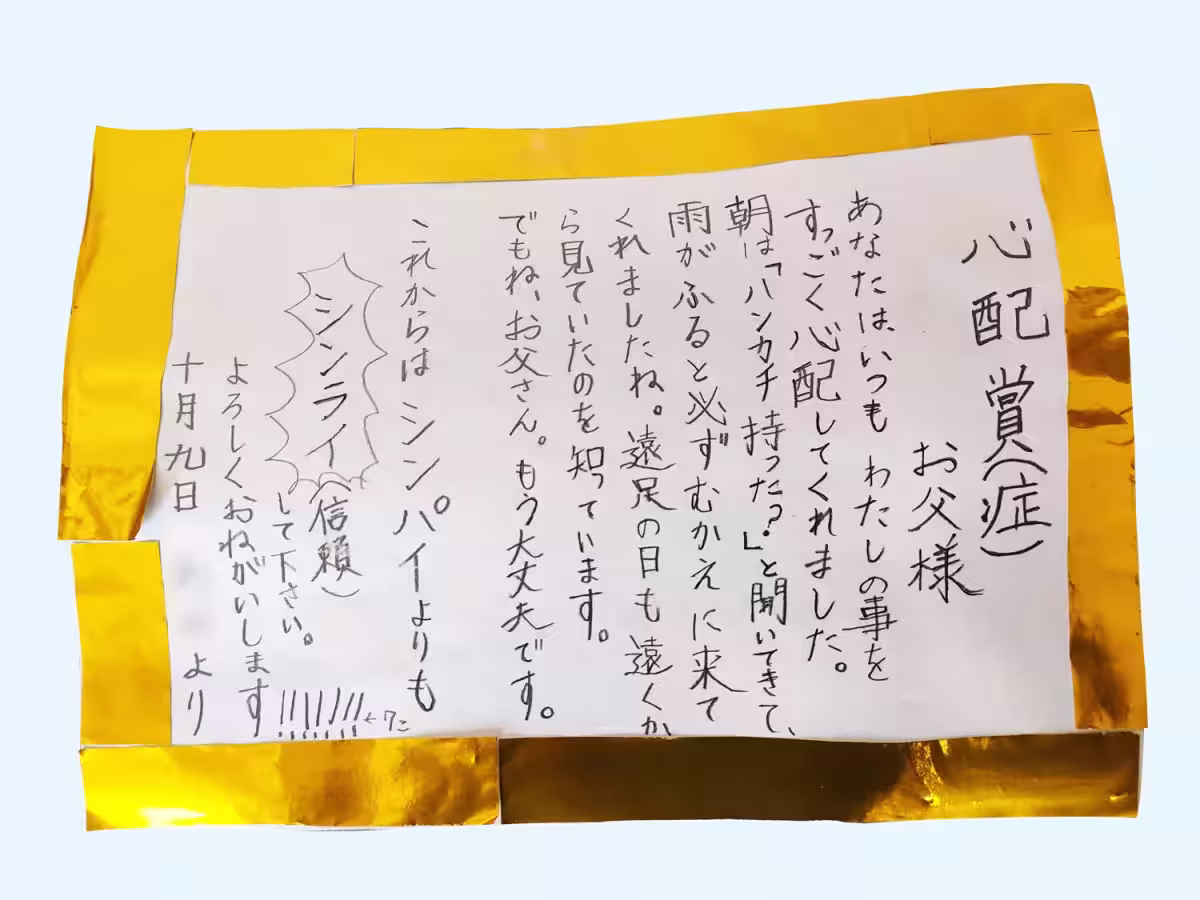 心配賞(症)
お父様
あなたは、いつもわたしの事を
すっごく心配してくれました。
朝は「ハンカチ持った?」と聞いてきて、
雨がふると必ずむかえに来て
くれましたね。遠足の日も遠くか
ら見ていたのを知っています。
でもね、お父さん。もう大丈夫です。
これからはシンパイよりも
シンライ(信頼)
して下さい。
よろしくおねがいします
!!!!!!!←7こ
十月九日
より